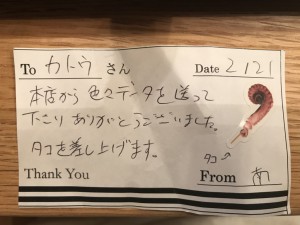 To カトウ さん Date 2/21
本店から色々データを送って
下さり ありがとうございました。
タコを差し上げます。
タコ→
Thank You From あ